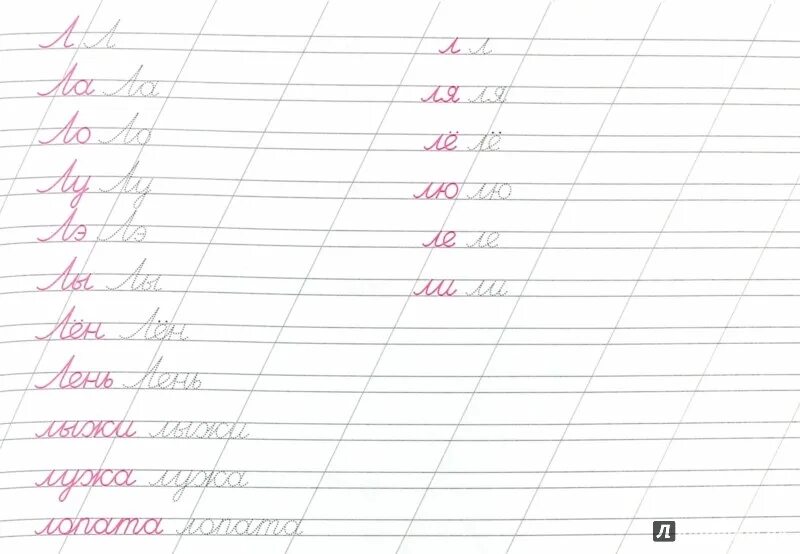 Л Л л л
Ла Ла ля ля
Ло Ло лё лё
Лу Лу лю лю
Лэ Лэ ле ле
Лы Лы ли ли
Лён Лён
Лень Лень
лыжи лыжи
лужа лужа
лопата лопата
Л